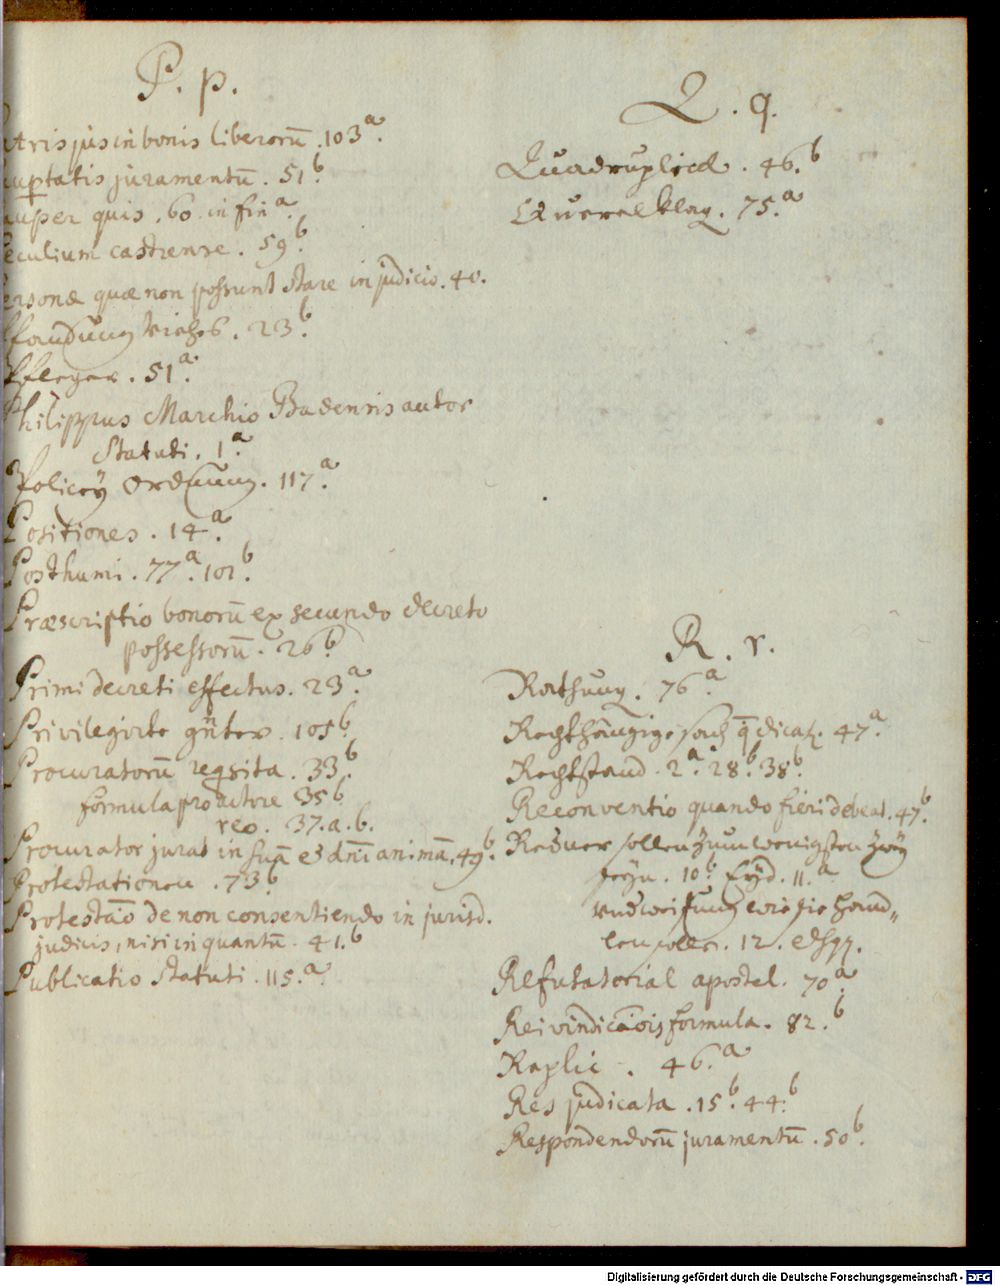 P. p.
Patris jus in bonis liberorū. 103.a
Paup̱tatis juramentū. 51.b
Pauper quis. 60. in fin.a
Peculium castrense. 59.b
Personæ quæ non possunt stare in judicio. 40.
Pfandung Viehes. 23.b
Pfleger. 51.a
Philippus Marchio Badensis autor
Statuti. 1.a
Policey Ordnung. 117.a
Positiones. 14.a
Posthumi. 77.a 101.b
Præscriptio bonorū ex secundo decreto
possessorū. 26.b
Primi decreti effectus. 23.a
Privilegirte güter. 105.b
Procuratorū reqsita. 33.b
formula pro actore 35b
reo. 37.a.b.
Procurator jurat in suā et dnī animā. 49.b
Protestationen. 73.b
Protestaõ de non consentiendo in jurisd.
judicis, nisi in quantū. 41.b
Publicatio Statuti. 115.a
Q. q.
Quadruplica. 46.b
Querelklag. 75.a
R. r.
Rathung. 76.a
Rechthängige sach q̄ dicat. 47.a
Rechtstand. 2.a 28.b 38.b
Reconventio quando fieri debeat. 47.b
Redner sollen zum wenigsten zwey
seyn. 10.b Eyd. 11.a
wie sie hand„
len sollen. 12. et sqq.
Refutatorial apostel. 70.a
Rei vindicãois formula. 82.b
Replic. 46.a
Res judicata. 15.b 44.b
Respondendorū juramentū. 50.b
Digitalisierung gefördert durch die Deutsche Forschungsgemeinschaft - DFG